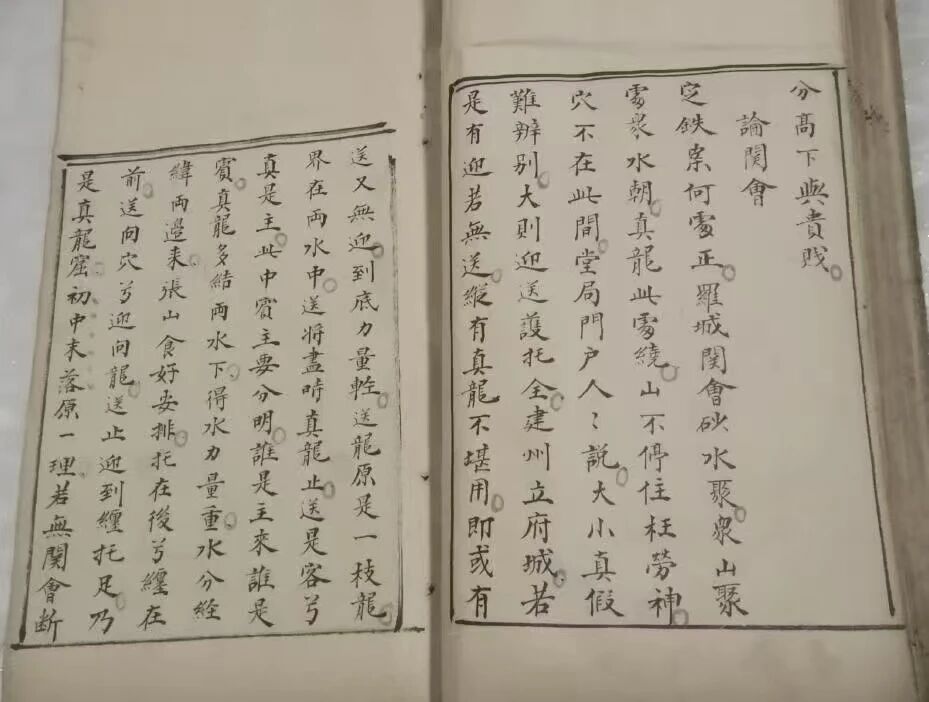 分高下與貴賤
論関會
定鉄案何處正羅城関會砂水聚衆山聚
處衆水朝真龍此處繞山不停住枉劳神
穴不在此間堂局門户人々説大小真假
難辨别大則迎送護托全建州立府城若
是有迎若無送縱有真龍不堪用即或有
送又無迎到底力量輕送龍原是一枝龍
界在両水中送将盡時真龍止送是客兮
真是主此中賓主要分明誰是主來誰是
賓真龍多結両水下得水力量重水分經
緯両邉来張山食好安排托在後兮纏在
前送向穴兮迎向龍送止迎到纏托足乃
是真龍窟初中末落原一理若無関會断